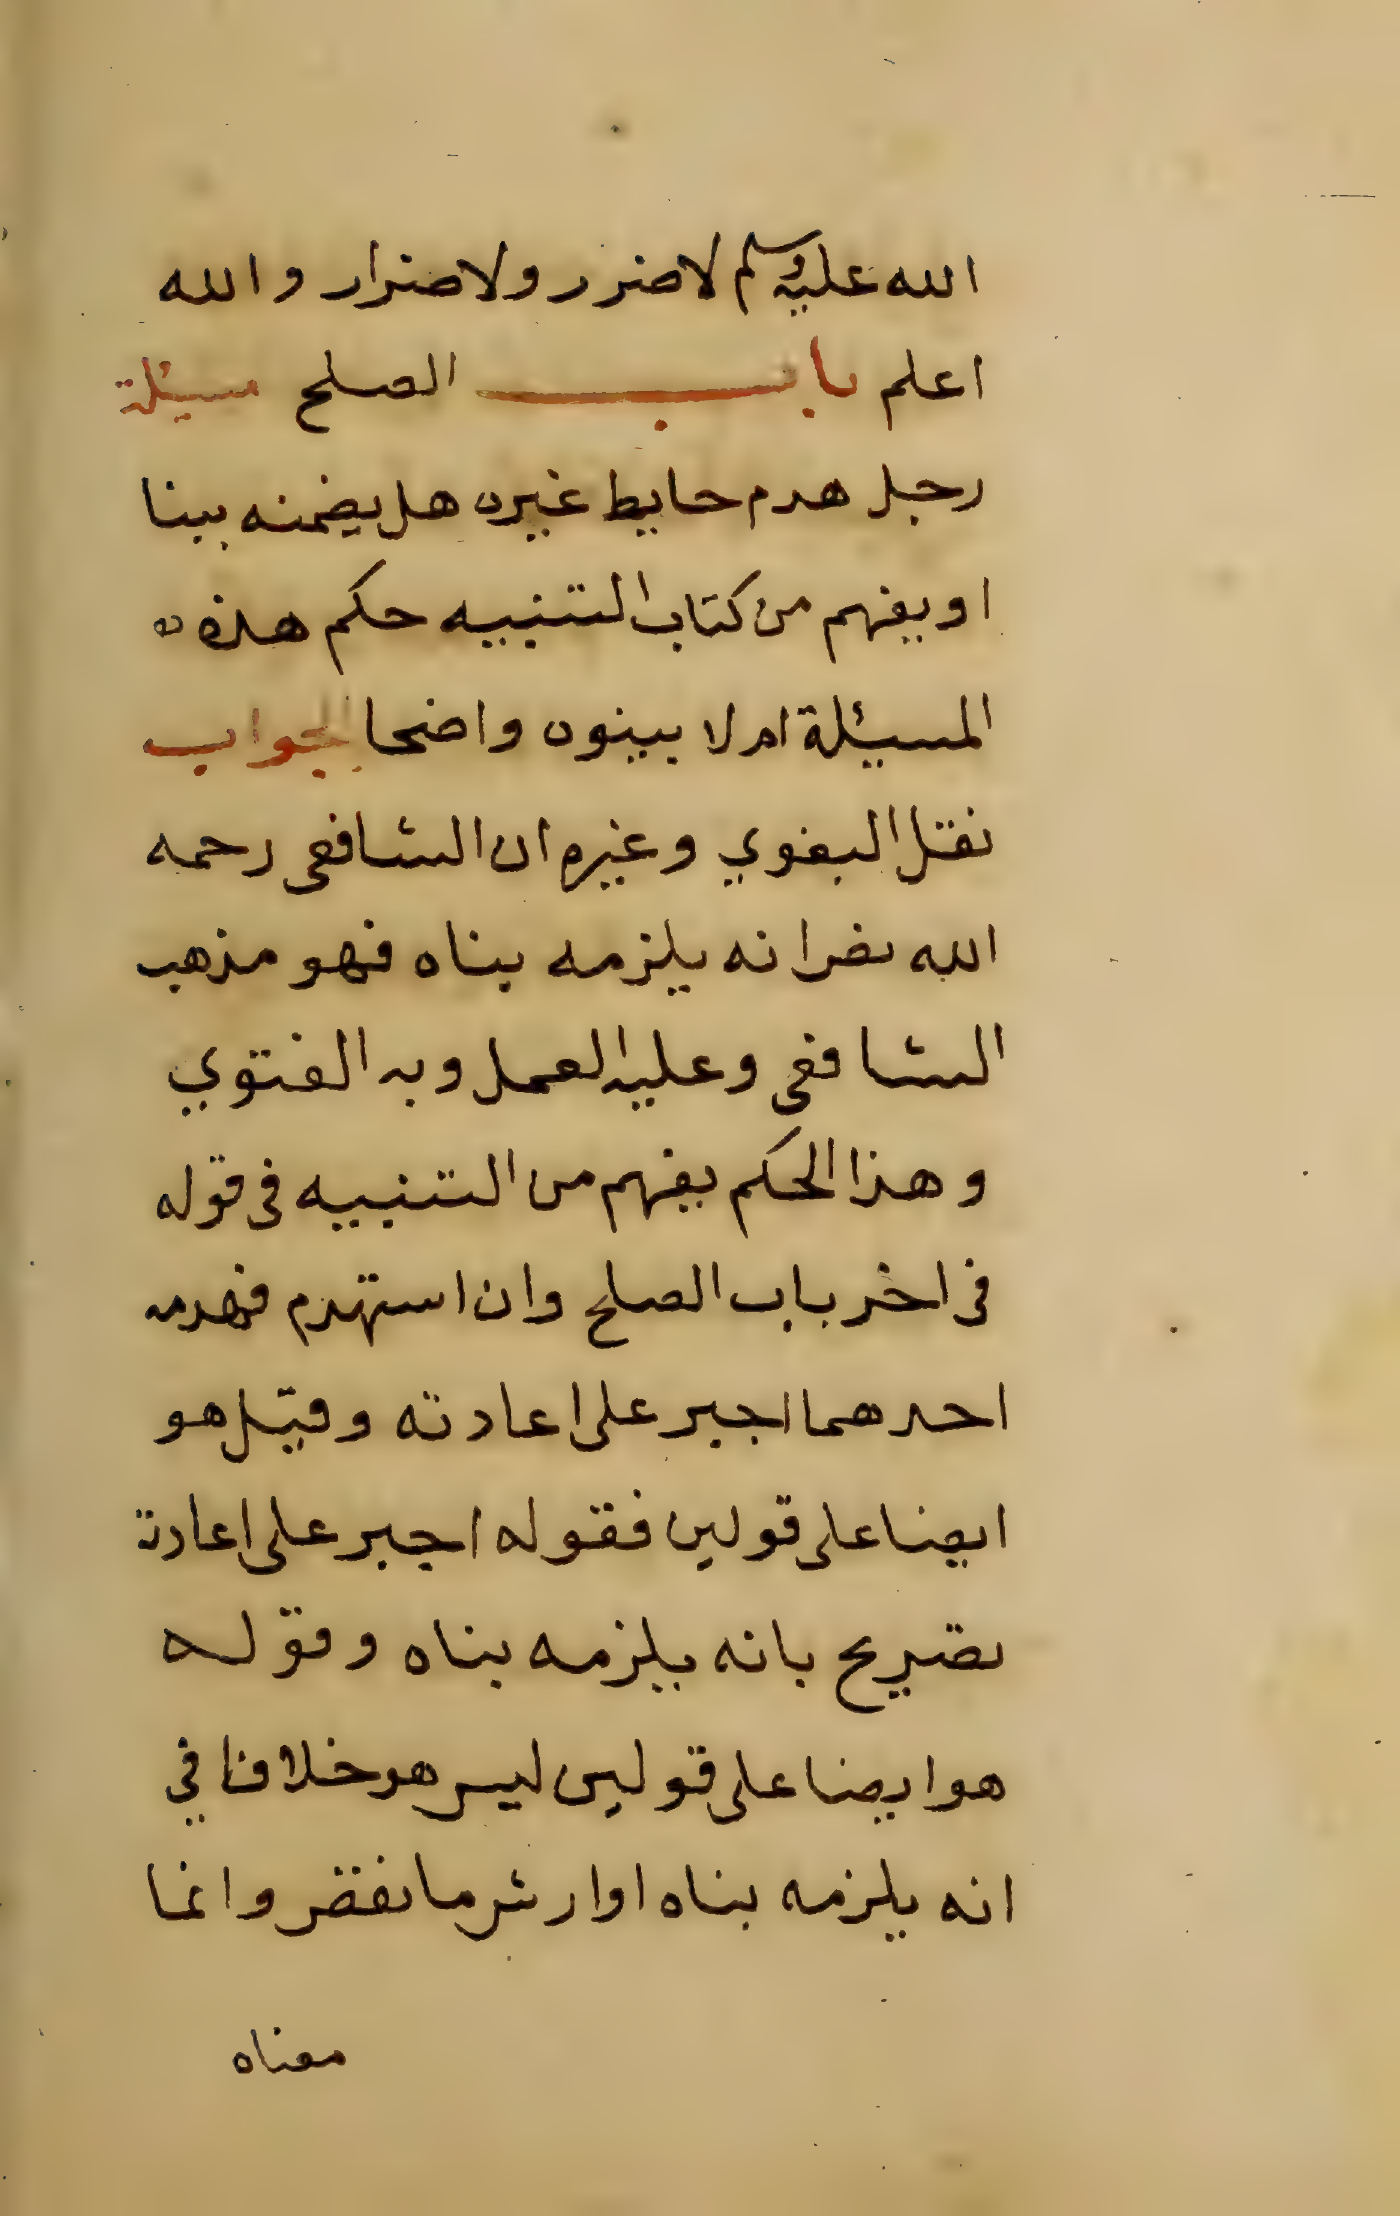 الله عليه وسلم لا ضرر ولا ضرار والله
اعلم باب الصلح مسيلة
رجل هدم حايط غيره هل يضمنه ببنا
او يفهم من كتاب التنبيه حكم هذه
المسيلة ام لا بينوه واضحا الجواب
نقل البغوي وغيره ان الشافعي رحمه
الله نص انه يلزمه بناه فهو مذهب
الشافعي وعليه العمل وبه الفتوي
وهذا الحكم يفهم من التنبيه في قوله
في اخر باب الصلح وان استهدم فهدمه
احدهما اجبر على اعادته وقيل هو
ايضا على قولين فقوله اجبر على اعادة
تصريح بانه يلزمه بناه وقوله
هو ايضا على قولين ليس هو خلافا في
انه يلزمه بناه او ارش ما نقص وانما
معناه